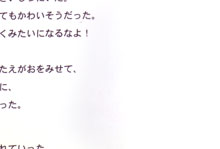 てもかわいそうだった。
くみたいになるなよ！
たえがおをみせて、
に、
った。
れていった